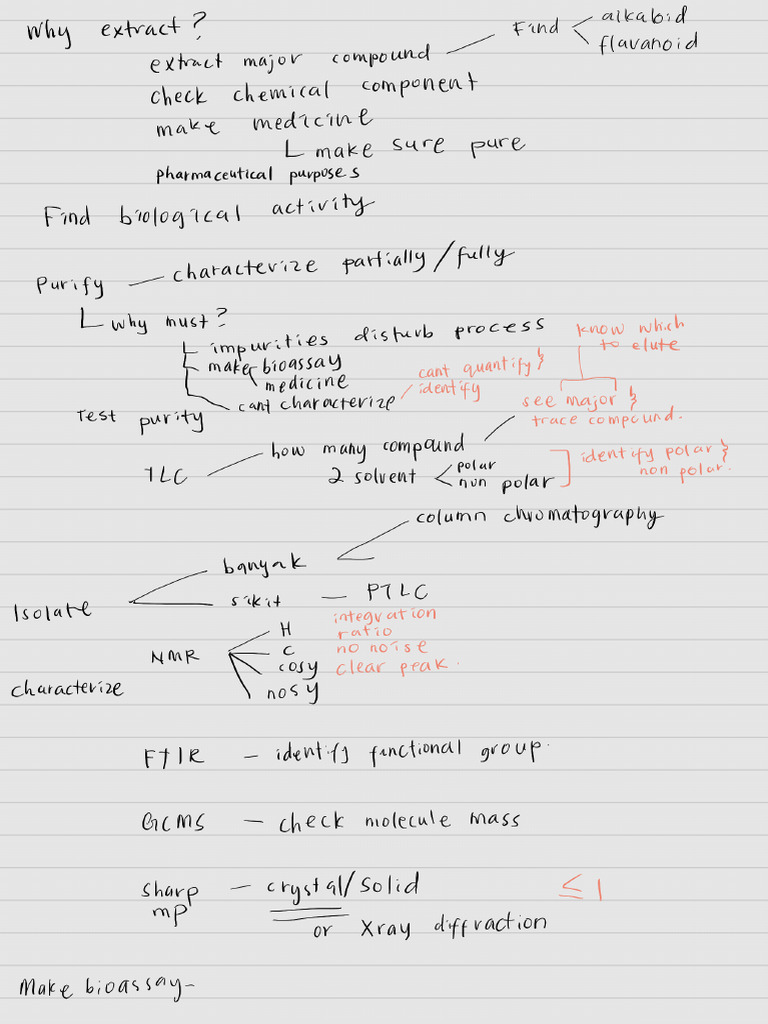 Why extract?
Find alkaloid
flavanoid
extract major compound
check chemical component
make medicine
make sure pure
pharmaceutical purposes
Find biological activity
Purify — characterize partially/fully
why must?
impurities disturb process
know which
to elute
make bioassay
medicine
cant quantify &
identify
cant characterize
see major &
trace compound.
Test purity
how many compound
TLC
2 solvent
polar
nun polar
identify polar &
non polar.
column chromatography
banyak
Isolate
sikit — PTLC
integration
ratio
no noise
clear peak.
NMR
H
C
cosy
nosy
characterize
FTIR — identify functional group.
GCMS — check molecule mass
sharp mp — crystal/solid ≤ 1
or Xray diffraction
Make bioassay-